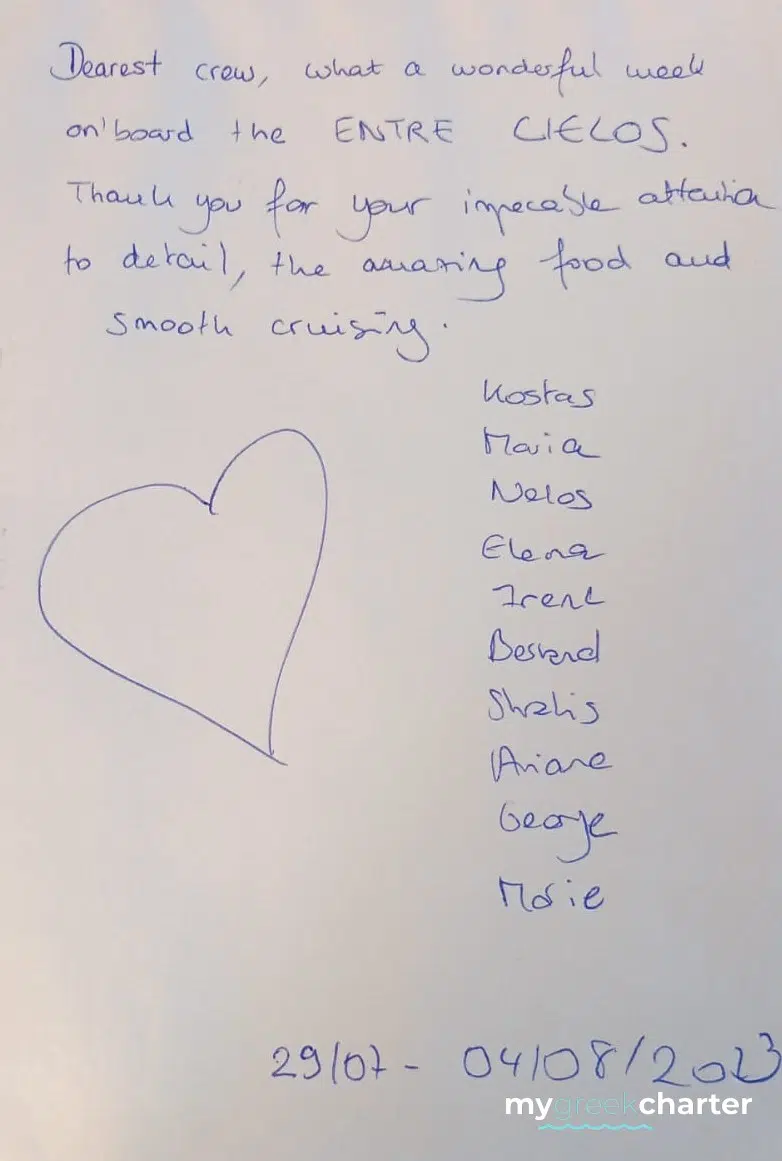 Dearest crew, what a wonderful week
on'board the ENTRE CIELOS.
Thank you for your impecable attention
to detail, the amazing food and
smooth cruising.
Kostas
Maria
Nelos
Elena
Irene
George
29/07 - 04/08/2023
mygreekcharter